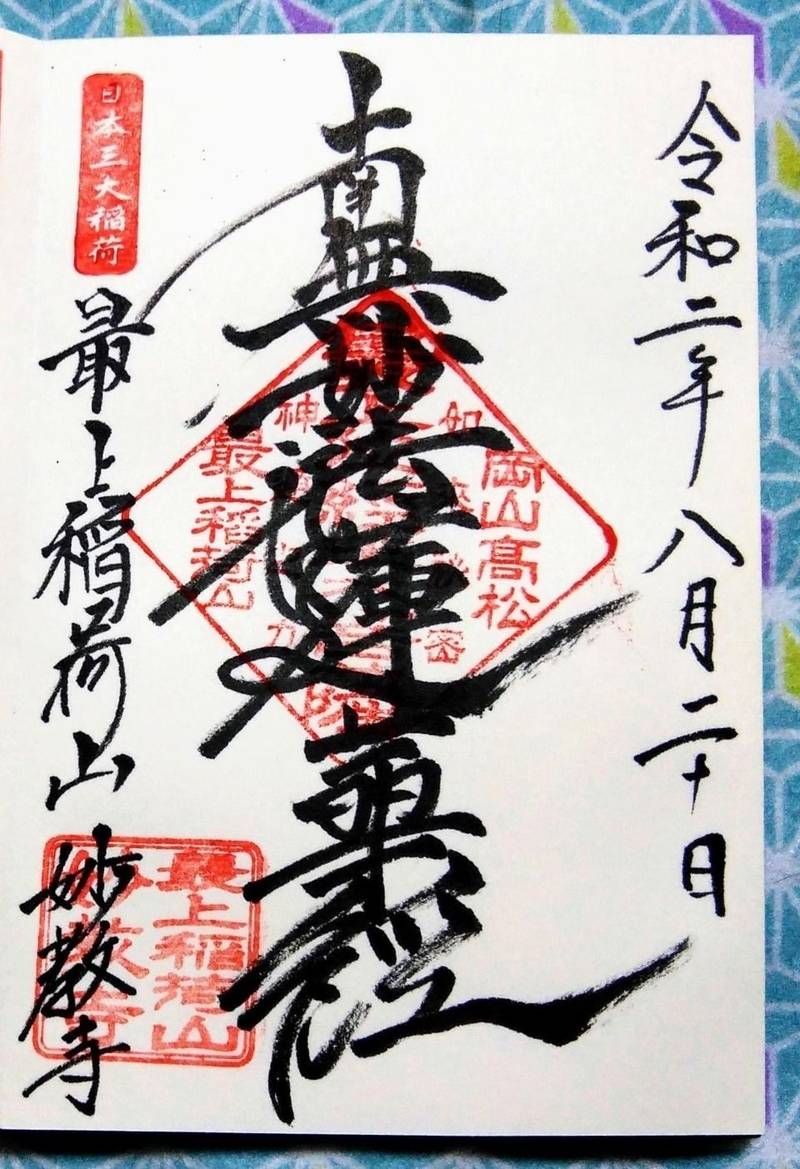 令和二年八月二十日
南無妙法蓮華經
岡山高松
最上稲荷山
日本三大稲荷
最上稲荷山
妙教寺
最上稲荷山
妙教寺